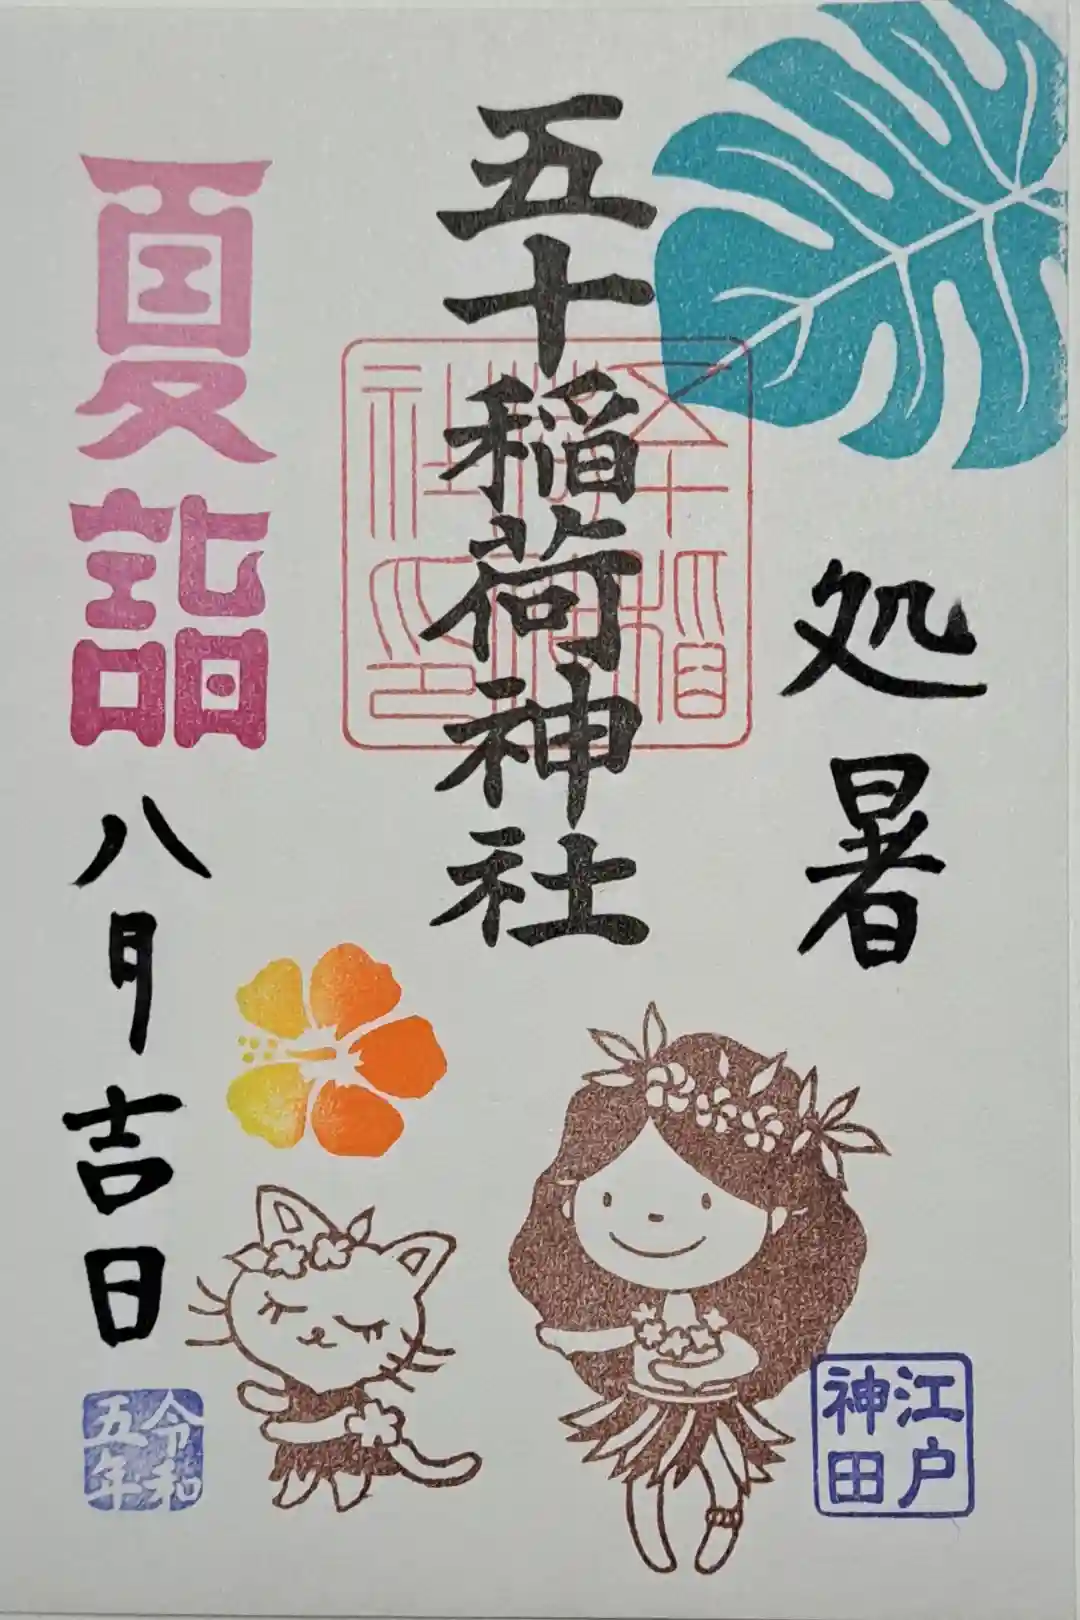 処暑
江戸
神田
五十稲荷神社
五十稲
荷神
社印
夏詣
八月吉日
令和
五年